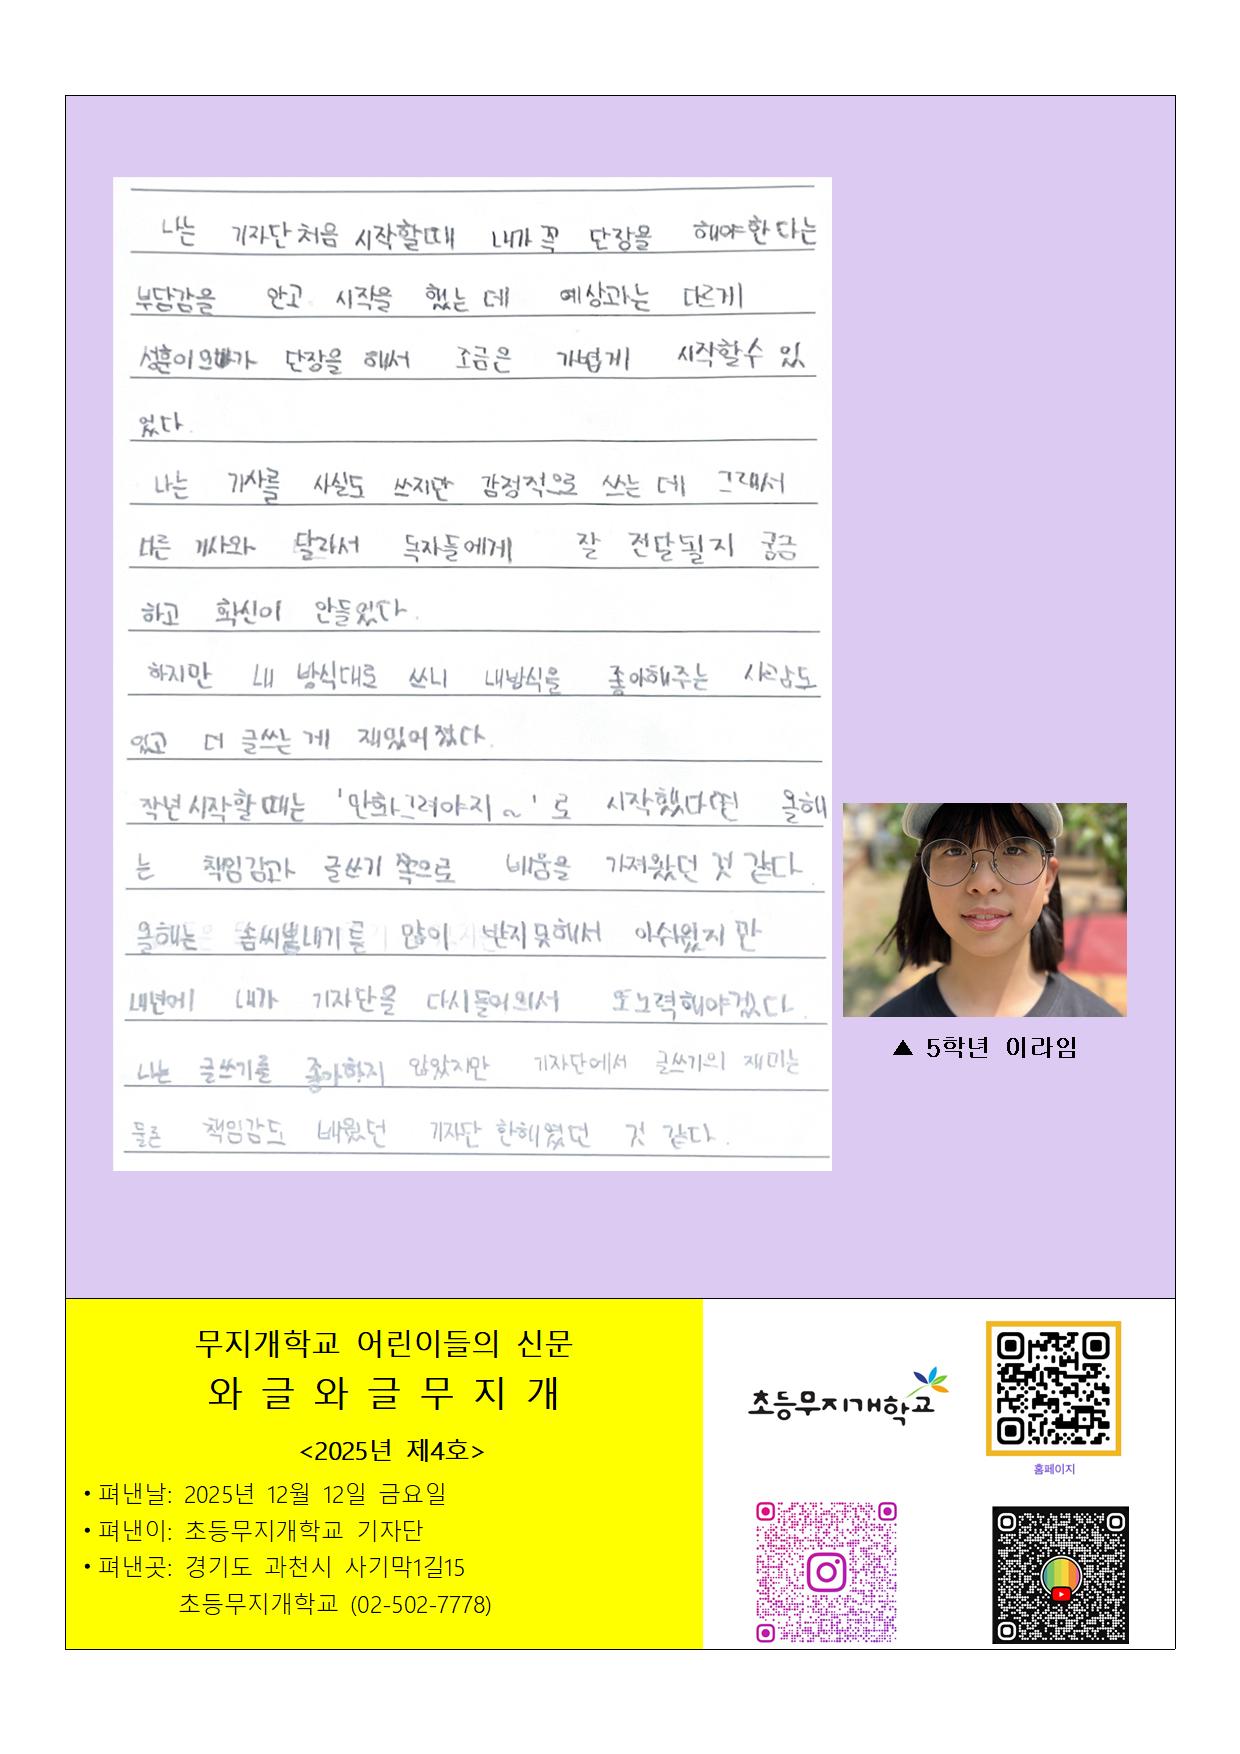 나는 기자단 처음 시작할때 내가 꼭 단장을 해야한다는
부담감을 안고 시작을 했는 데 예상과는 다르게
성훈이오빠가 단장을 해서 조금은 가볍게 시작할수 있
었다.
나는 기사를 사실도 쓰지만 감정적으로 쓰는 데 그래서
다른 기사와 달라서 독자들에게 잘 전달될지 궁금
하고 확신이 안들었다.
하지만 내 방식대로 쓰니 내방식을 좋아해주는 사람도
있고 더 글쓰는 게 재밌어졌다.
작년 시작할 때는 '만화그려야지~'로 시작했다면 올해
는 책임감과 글쓰기 쪽으로 배움을 가져왔던 것 같다.
올해는 솜씨뽐내기를 많이 받지못해서 아쉬웠지 만
내년에 내가 기자단을 다시들어와서 또노력해야겠다.
나는 글쓰기를 좋아하지 않았지만 기자단에서 글쓰기의 재미는
물론 책임감도 배웠던 기자단 한해였던 것 같다.
▲ 5학년 이라임
무지개학교 어린이들의 신문
와 글 와 글 무 지 개
<2025년 제4호>
• 펴낸날: 2025년 12월 12일 금요일
• 펴낸이: 초등무지개학교 기자단
• 펴낸곳: 경기도 과천시 사기막1길15
초등무지개학교 (02-502-7778)
초등무지개학교
홈페이지